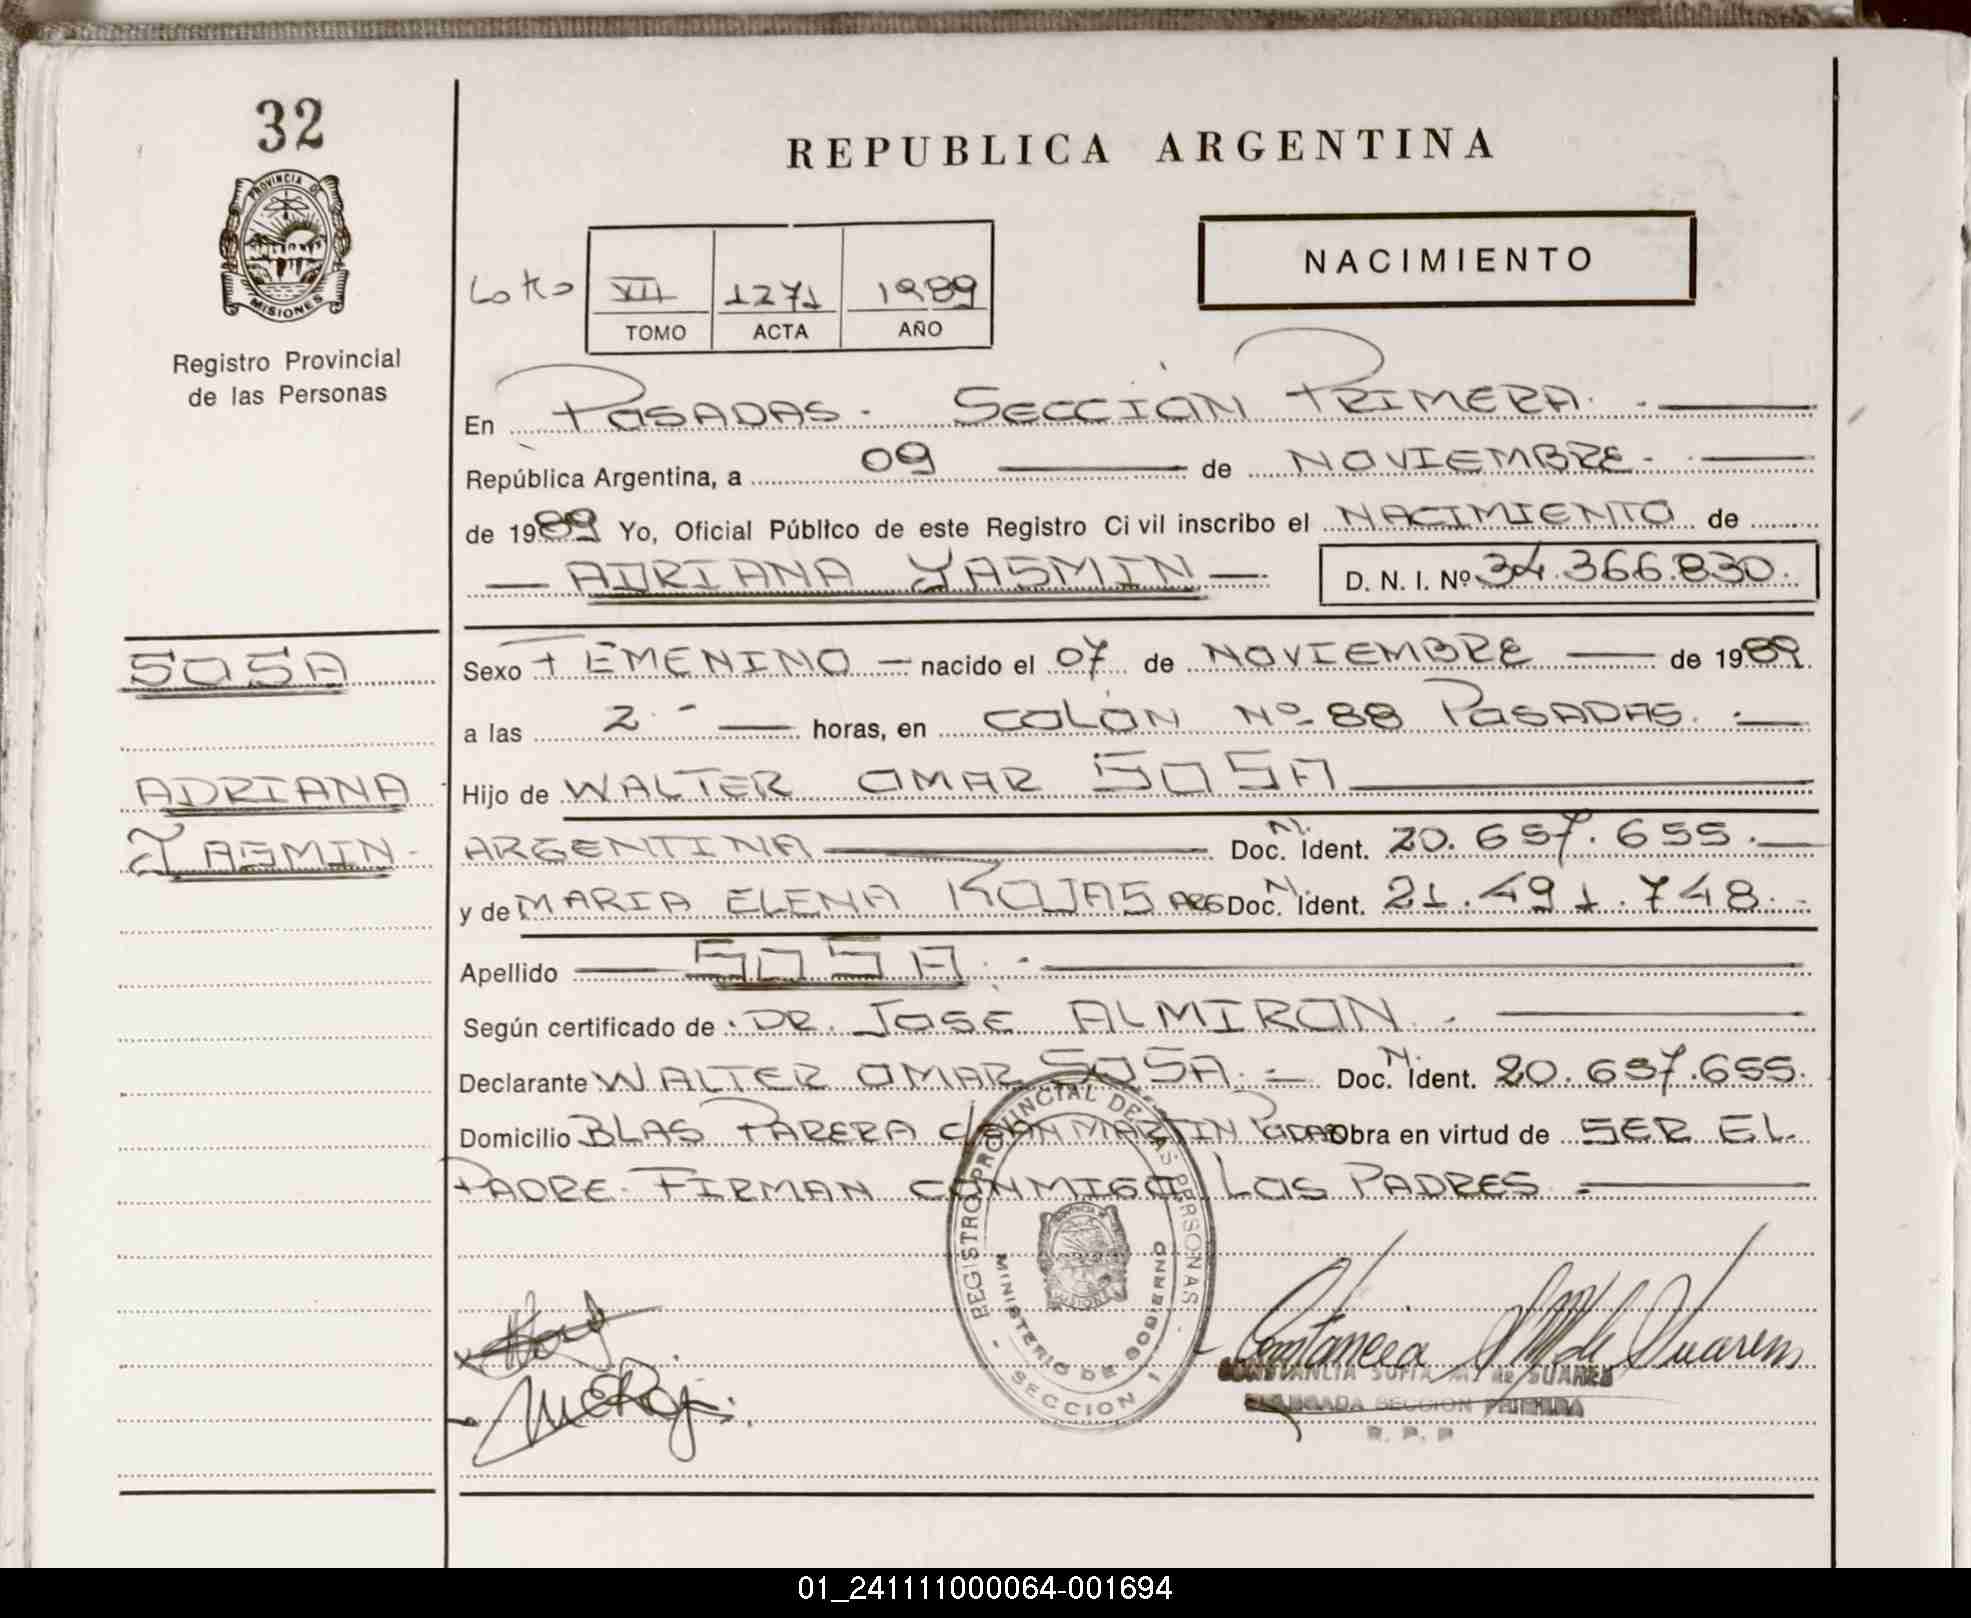 32
PROVINCIA DE
MISIONES
Registro Provincial
de las Personas
REPUBLICA ARGENTINA
NACIMIENTO
VII 1271 1989
TOMO ACTA AÑO
En POSADAS. SECCIÓN PRIMERA.
República Argentina, a 09 de NOVIEMBRE
de 1989 Yo, Oficial Público de este Registro Civil inscribo el NACIMIENTO de
ADRIANA YASMIN D. N. I. Nº 34.366.830.
SOSA
ADRIANA
YASMIN
Sexo FEMENINO nacido el 07 de NOVIEMBRE de 1989
a las 2 horas, en COLÓN Nº 88 POSADAS.
Hijo de WALTER OMAR SOSA
ARGENTINA Doc. N. Ident. 20.657.655.
y de MARIA ELENA ROJAS ARG Doc. N. Ident. 21.491.748.
Apellido SOSA.
Según certificado de DR. JOSÉ ALMIRON.
Declarante WALTER OMAR SOSA. Doc. N. Ident. 20.657.655.
Domicilio BLAS PARERA MARTIN Obra en virtud de SER EL
PADRE. FIRMAN CONMIGO LOS PADRES.
REGISTRO PROVINCIAL DE LAS PERSONAS
MINISTERIO DE GOBIERNO
SECCION 1
CONSTANCIA SOFIA M. de SUAREZ
DELEGADA SECCION PRIMERA
R. P. P
01_241111000064-001694